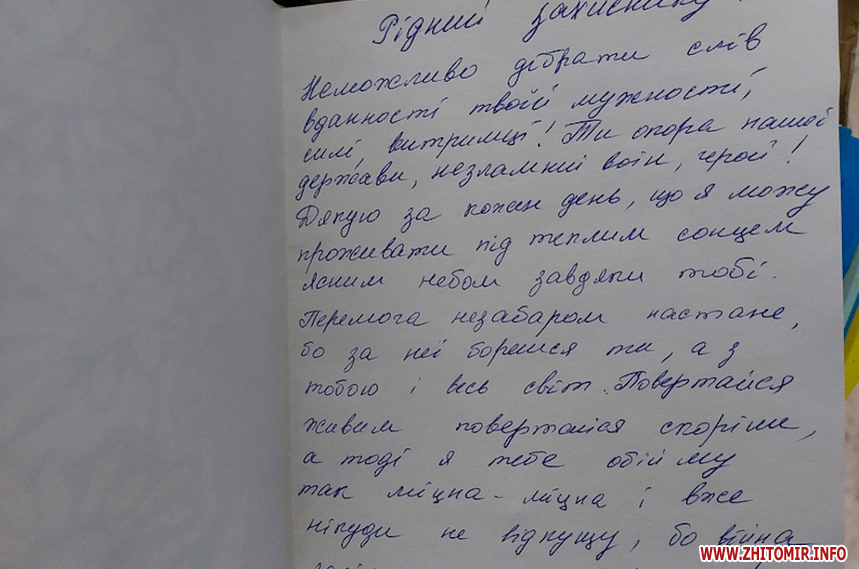 Рідний захиснику
Неможливо дібрати слів
вданності твоїй мужності,
силі, витримці! Ти опора нашої
держави, незламний воїн, герой!
Дякую за кожен день, що я можу
проживати під теплим сонцем
ясним небом завдяки тобі.
Перемога незабаром настане,
бо за неї борешся ти, а з
тобою і весь світ. Повертайся
живим повертайся скоріше,
а тоді я тебе обійму
так міцна-міцна і вже
нікуди не відпущу, бо війна
WWW.ZHITOMIR.INFO